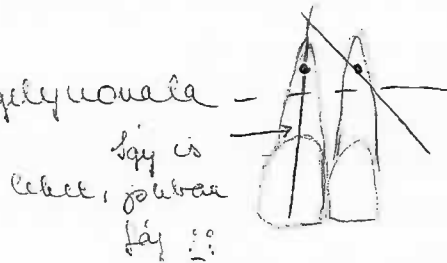 gelyvonala –
Így is
lehet, jobban
fáj !!